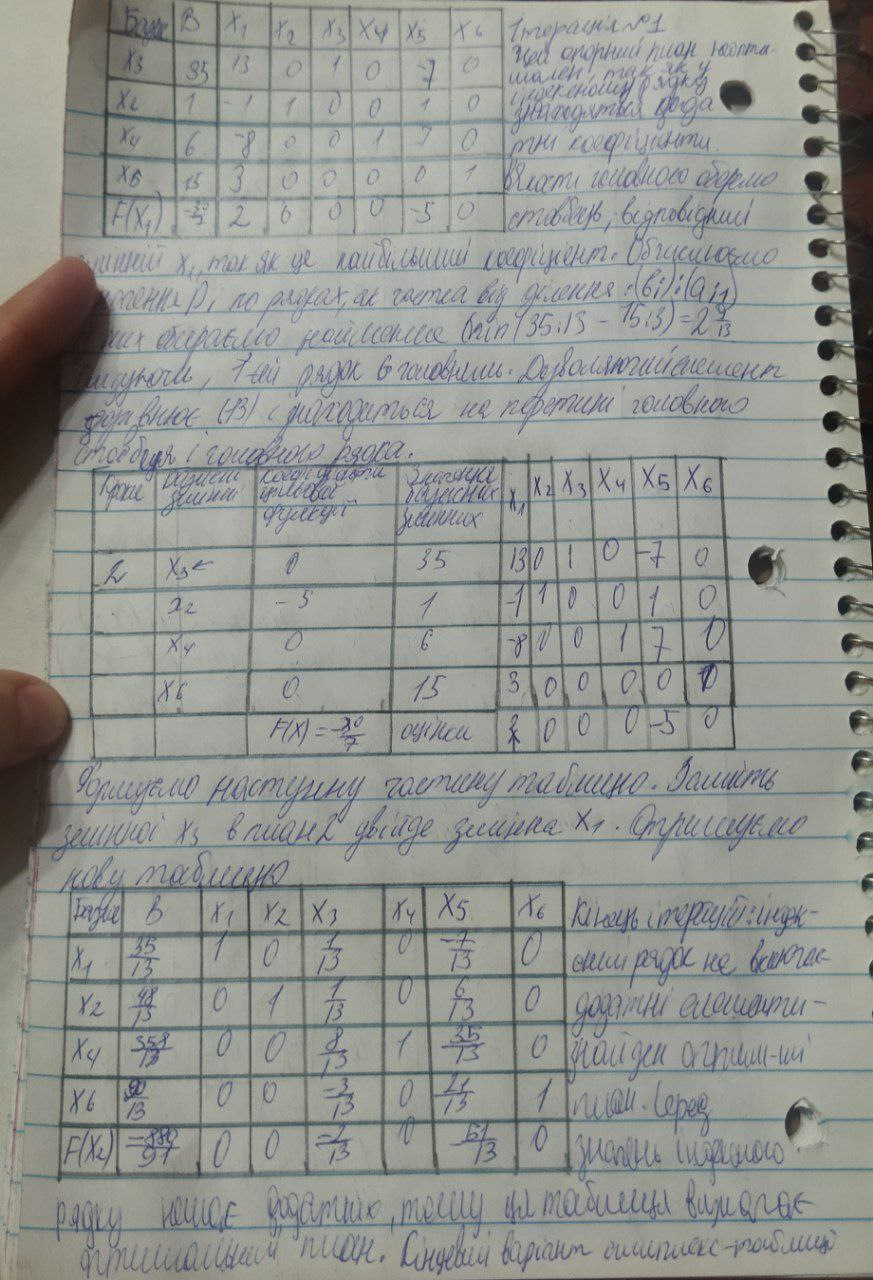 Базис B X₁ X₂ X₃ X₄ X₅ X₆
X₃ 35 13 0 1 0 -7 0
X₂ 1 -1 1 0 0 1 0
X₄ 6 -8 0 0 1 7 0
X₆ 15 3 0 0 0 0 1
F(X₁) 2 0 0 0 -5 0
Ітерація №1
Цей опорний план неопти-
мален, так як у
індексному рядку
знаходяться дода
тні коефіцієнти.
в якості головного оберемо
стовбець, відповідний
змінній X₁, так як це найбільший коефіцієнт. Обчислюємо
значення Dᵢ по рядках, як частка від ділення: (bᵢ):(aᵢ₁)
них обираємо найменше (min(35:13 - 15:3) = 2 9/13
1-ей рядок є головним. Дозволяючий елемент
дорівнює (13) і знаходиться на перетині головного
стовбця і головного рядка.
базисні змінні коефіцієнти цільової функції Значення базисних змінних X₁ X₂ X₃ X₄ X₅ X₆
2 X₃← 0 35 13 0 1 0 -7 0
X₂ -5 1 -1 1 0 0 1 0
X₄ 0 6 -8 0 0 1 7 0
X₆ 0 15 3 0 0 0 0 1
F(X) = -30/7 оцінки 2 0 0 0 -5 0
Формуємо наступну частину таблицю. Замість
змінної X₃ в план 2 двійде змінна X₁. Отримуємо
нову таблицю
Базис B X₁ X₂ X₃ X₄ X₅ X₆
X₁ 35/13 1 0 1/13 0 -7/13 0
X₂ 48/13 0 1 1/13 0 6/13 0
X₄ 358/13 0 0 8/13 1 35/13 0
X₆ 90/13 0 0 -3/13 0 21/13 1
F(X₂) -880/91 0 0 -2/13 0 51/13 0
Кінець ітерацій: індек-
сний рядок не включає
додатні елементи -
знайден оптим-ий
план. Серед
значень індексного
рядку немає додатніх, тому ця таблиця визначає
оптимальний план. Кінцевий варіант симплекс-таблиці